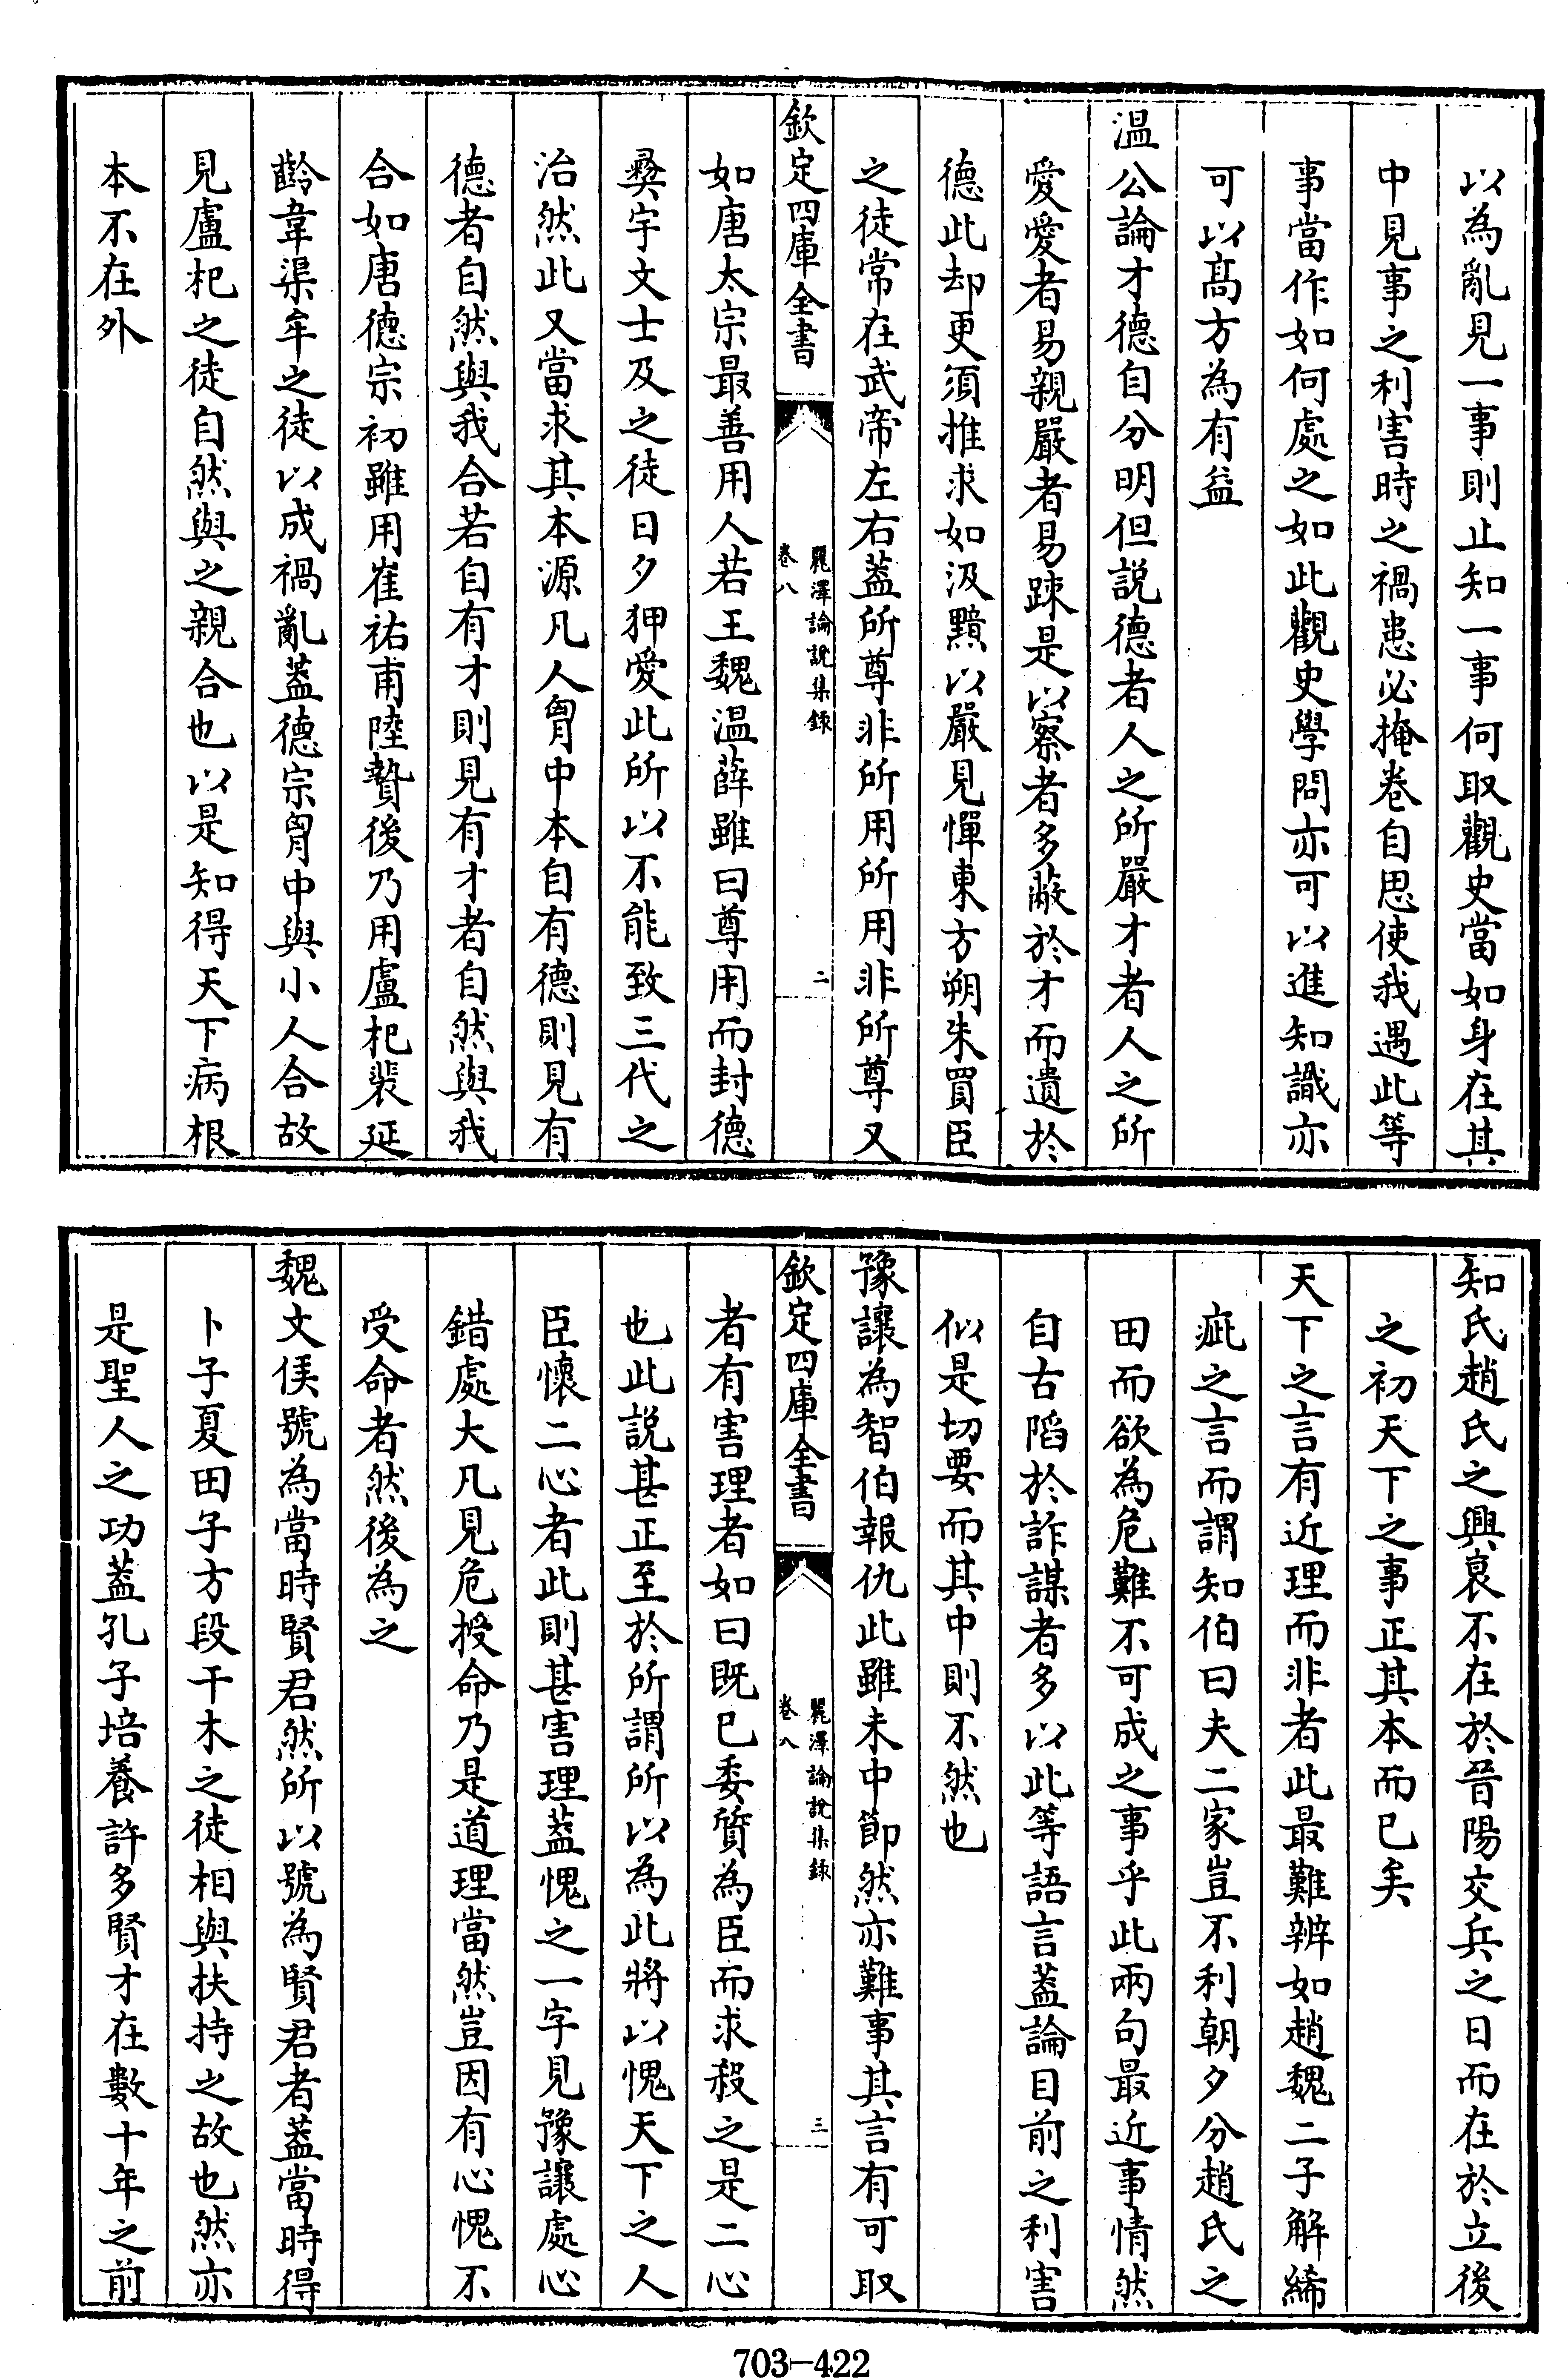 以為亂見一事則止知一事何取觀史當如身在其
中見事之利害時之禍患必掩卷自思使我遇此等
事當作如何處之如此觀史學問亦可以進知識亦
可以髙方為有益
温公論才德自分明但説德者人之所嚴才者人之所
愛愛者易親嚴者易踈是以察者多蔽於才而遺於
德此却更須推求如汲黯以嚴見憚東方朔朱買臣
之徒常在武帝左右葢所尊非所用所用非所尊又
欽定四庫全書
麗澤論說集録
卷八
二
如唐太宗最善用人若王魏温薛雖曰尊用而封德
彛宇文士及之徒日夕狎愛此所以不能致三代之
治然此又當求其本源凡人胷中本自有德則見有
德者自然與我合若自有才則見有才者自然與我
合如唐德宗初雖用崔祐甫陸贄後乃用盧杞裴延
齡韋渠牟之徒以成禍亂葢德宗胷中與小人合故
見盧杞之徒自然與之親合也以是知得天下病根
本不在外
知氏趙氏之興衰不在於晉陽交兵之日而在於立後
之初天下之事正其本而已矣
天下之言有近理而非者此最難辨如趙魏二子解絺
疵之言而謂知伯曰夫二家豈不利朝夕分趙氏之
田而欲為危難不可成之事乎此兩句最近事情然
自古䧟於詐謀者多以此等語言葢論目前之利害
似是切要而其中則不然也
豫讓為智伯報仇此雖未中節然亦難事其言有可取
欽定四庫全書
麗澤論說集録
卷八
三
者有害理者如曰既已委質為臣而求殺之是二心
也此説甚正至於所謂所以為此將以愧天下之人
臣懷二心者此則甚害理葢愧之一字見豫讓處心
錯處大凡見危授命乃是道理當然豈因有心愧不
受命者然後為之
魏文侯號為當時賢君然所以號為賢君者葢當時得
卜子夏田子方段干木之徒相與扶持之故也然亦
是聖人之功葢孔子培養許多賢才在數十年之前
703-422